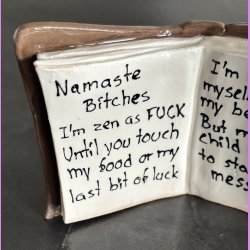 Namaste
Bitches
I'm zen as FUCK
Until you touch
my food or my
last bit of luck
I'm
mysel
my be
But m
child
to sta
mess